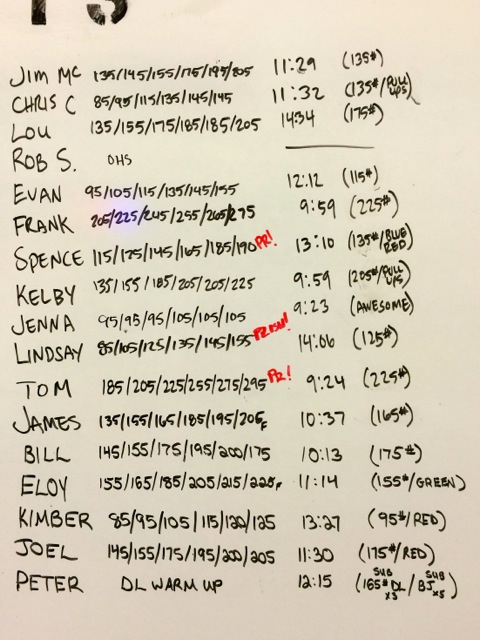 JIM MC 135/145/155/175/195/205 11:29 (135#)
CHRIS C 85/95/115/135/145/145 11:32 (135#/PULL UPS)
LOU 135/155/175/185/185/205 14:34 (175#)
ROB S. OHS
EVAN 95/105/115/135/145/155 12:12 (115#)
FRANK 205/225/245/255/265/275 9:59 (225#)
SPENCE 115/125/145/165/185/190 PR! 13:10 (135#/BLUE RED)
KELBY 135/155/185/205/205/225 9:59 (205#/PULL UPS)
JENNA 95/95/95/105/105/105 9:23 (AWESOME)
LINDSAY 85/105/125/135/145/155 14:06 (125#)
TOM 185/205/225/255/275/295 PR! 9:24 (225#)
JAMES 135/155/165/185/195/205F 10:37 (165#)
BILL 145/155/175/195/200/175 10:13 (175#)
ELOY 155/165/185/205/215/225F 11:14 (155#/GREEN)
KIMBER 85/95/105/115/120/125 13:27 (95#/RED)
JOEL 145/155/175/195/200/205 11:30 (175#/RED)
PETER DL WARM UP 12:15 (SUB 165# DL x5/SUB BJ x5)